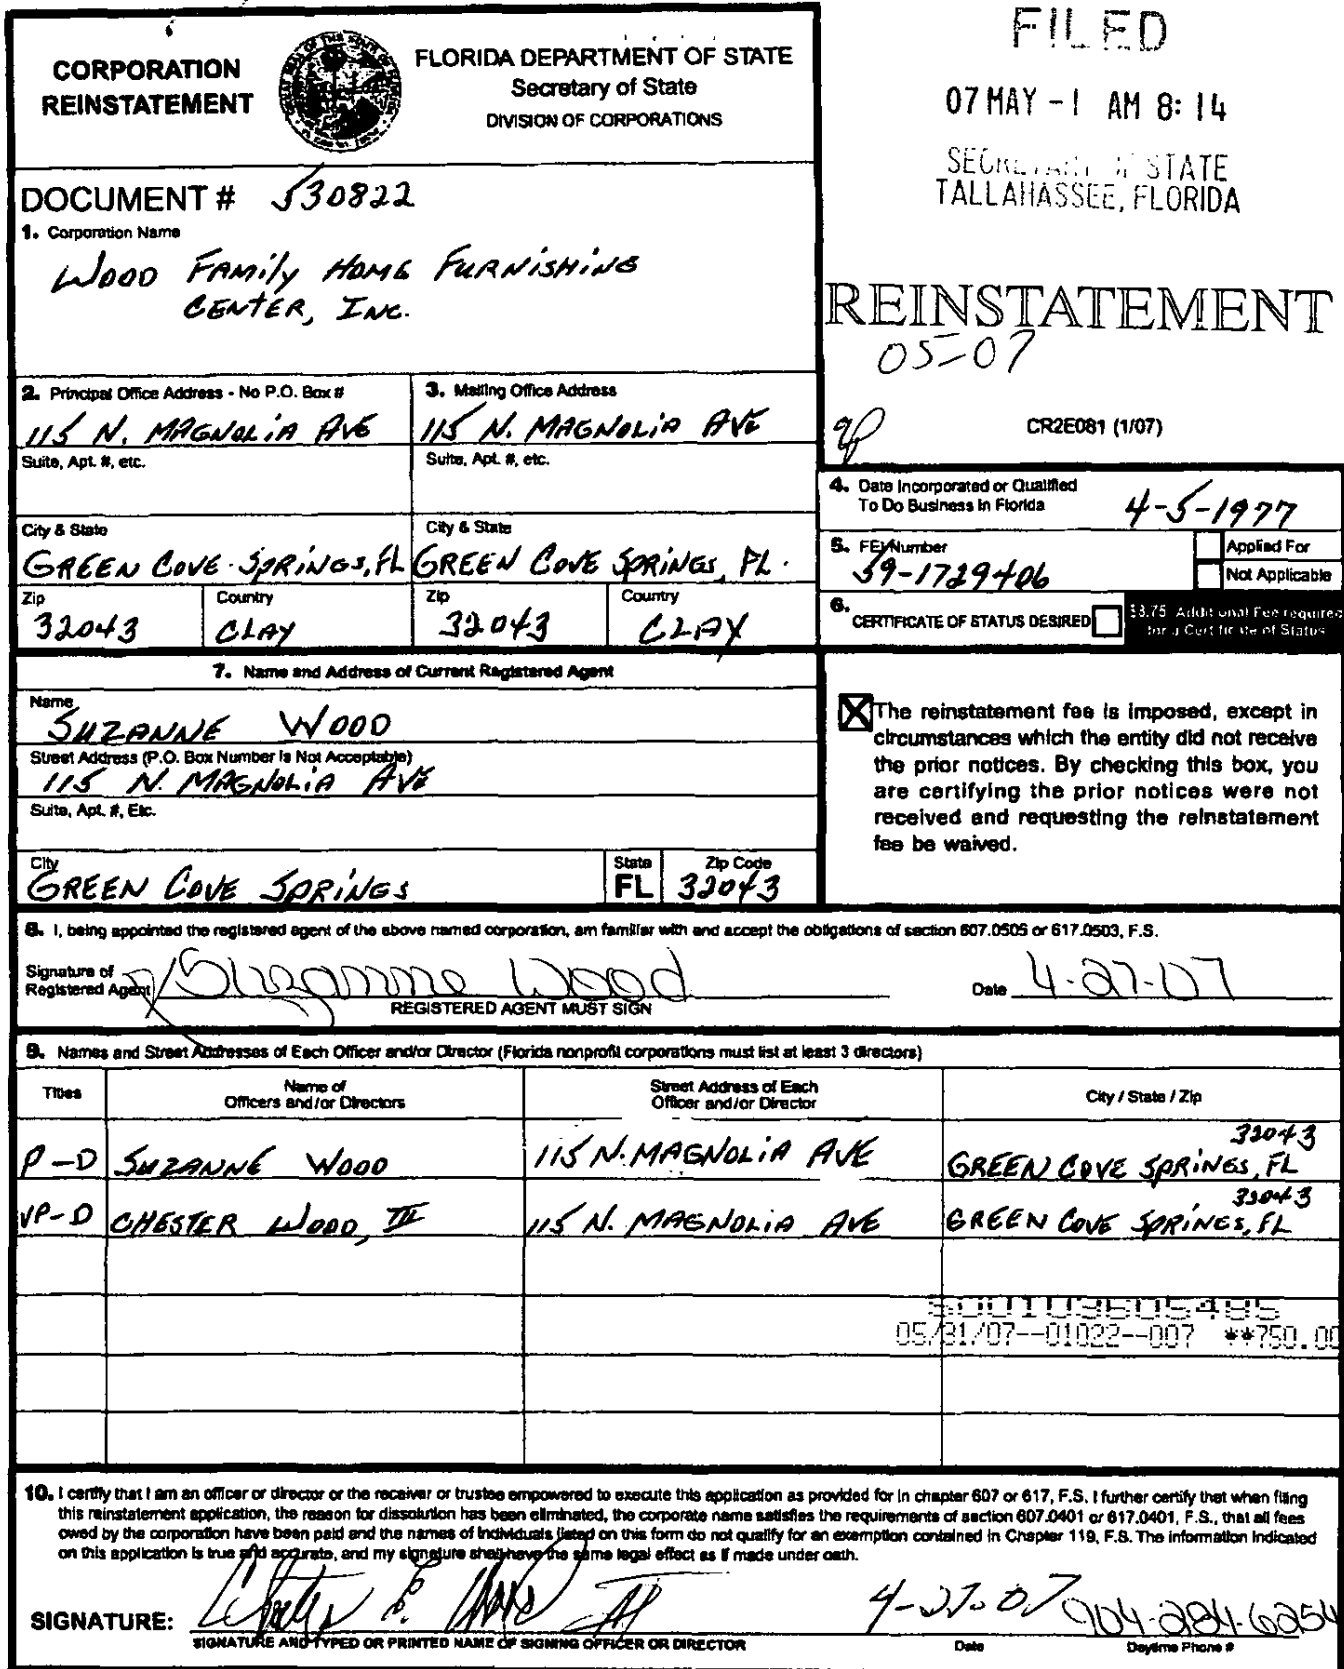 CORPORATION
REINSTATEMENT
FLORIDA DEPARTMENT OF STATE
Secretary of State
DIVISION OF CORPORATIONS
FILED
07 MAY -1 AM 8:14
STATE
TALLAHASSEE, FLORIDA
DOCUMENT # 530822
1. Corporation Name
WOOD FAMILY HOME FURNISHING
CENTER, INC.
REINSTATEMENT
05-07
CR2E081 (1/07)
2. Principal Office Address - No P.O. Box #
115 N. MAGNOLIA AVE
3. Mailing Office Address
115 N. MAGNOLIA AVE
Suite, Apt. #, etc.
Suite, Apt. #, etc.
City & State
GREEN COVE SPRINGS, FL
City & State
GREEN COVE SPRINGS, FL.
Zip
32043
Country
CLAY
Zip
32043
Country
CLAY
4. Date Incorporated or Qualified
To Do Business in Florida
4-5-1977
5. FEI Number
59-1729406
Applied For
Not Applicable
6. CERTIFICATE OF STATUS DESIRED
$8.75 Additional Fee required
for a Certificate of Status
7. Name and Address of Current Registered Agent
Name
SUZANNE WOOD
Street Address (P.O. Box Number is Not Acceptable)
115 N. MAGNOLIA AVE
Suite, Apt. #, Etc.
City
GREEN COVE SPRINGS
State
FL
Zip Code
32043
The reinstatement fee is imposed, except in
circumstances which the entity did not receive
the prior notices. By checking this box, you
are certifying the prior notices were not
received and requesting the reinstatement
fee be waived.
8. I, being appointed the registered agent of the above named corporation, am familiar with and accept the obligations of section 607.0505 or 617.0503, F.S.
Signature of
Registered Agent
Suzanne Wood
REGISTERED AGENT MUST SIGN
Date 4-27-07
9. Names and Street Addresses of Each Officer and/or Director (Florida nonprofit corporations must list at least 3 directors)
Titles
Name of
Officers and/or Directors
Street Address of Each
Officer and/or Director
City / State / Zip
P-D SUZANNE WOOD 115 N. MAGNOLIA AVE GREEN COVE SPRINGS, FL 32043
VP-D CHESTER WOOD, III 115 N. MAGNOLIA AVE GREEN COVE SPRINGS, FL 32043
05/31/07--01022--007 **750.00
10. I certify that I am an officer or director or the receiver or trustee empowered to execute this application as provided for in chapter 607 or 617, F.S. I further certify that when filing
this reinstatement application, the reason for dissolution has been eliminated, the corporate name satisfies the requirements of section 607.0401 or 617.0401, F.S., that all fees
owed by the corporation have been paid and the names of individuals listed on this form do not qualify for an exemption contained in Chapter 119, F.S. The information indicated
on this application is true and accurate, and my signature shall have the same legal effect as if made under oath.
SIGNATURE:
SIGNATURE AND TYPED OR PRINTED NAME OF SIGNING OFFICER OR DIRECTOR
4-27-07
Date
904-284-6254
Daytime Phone #